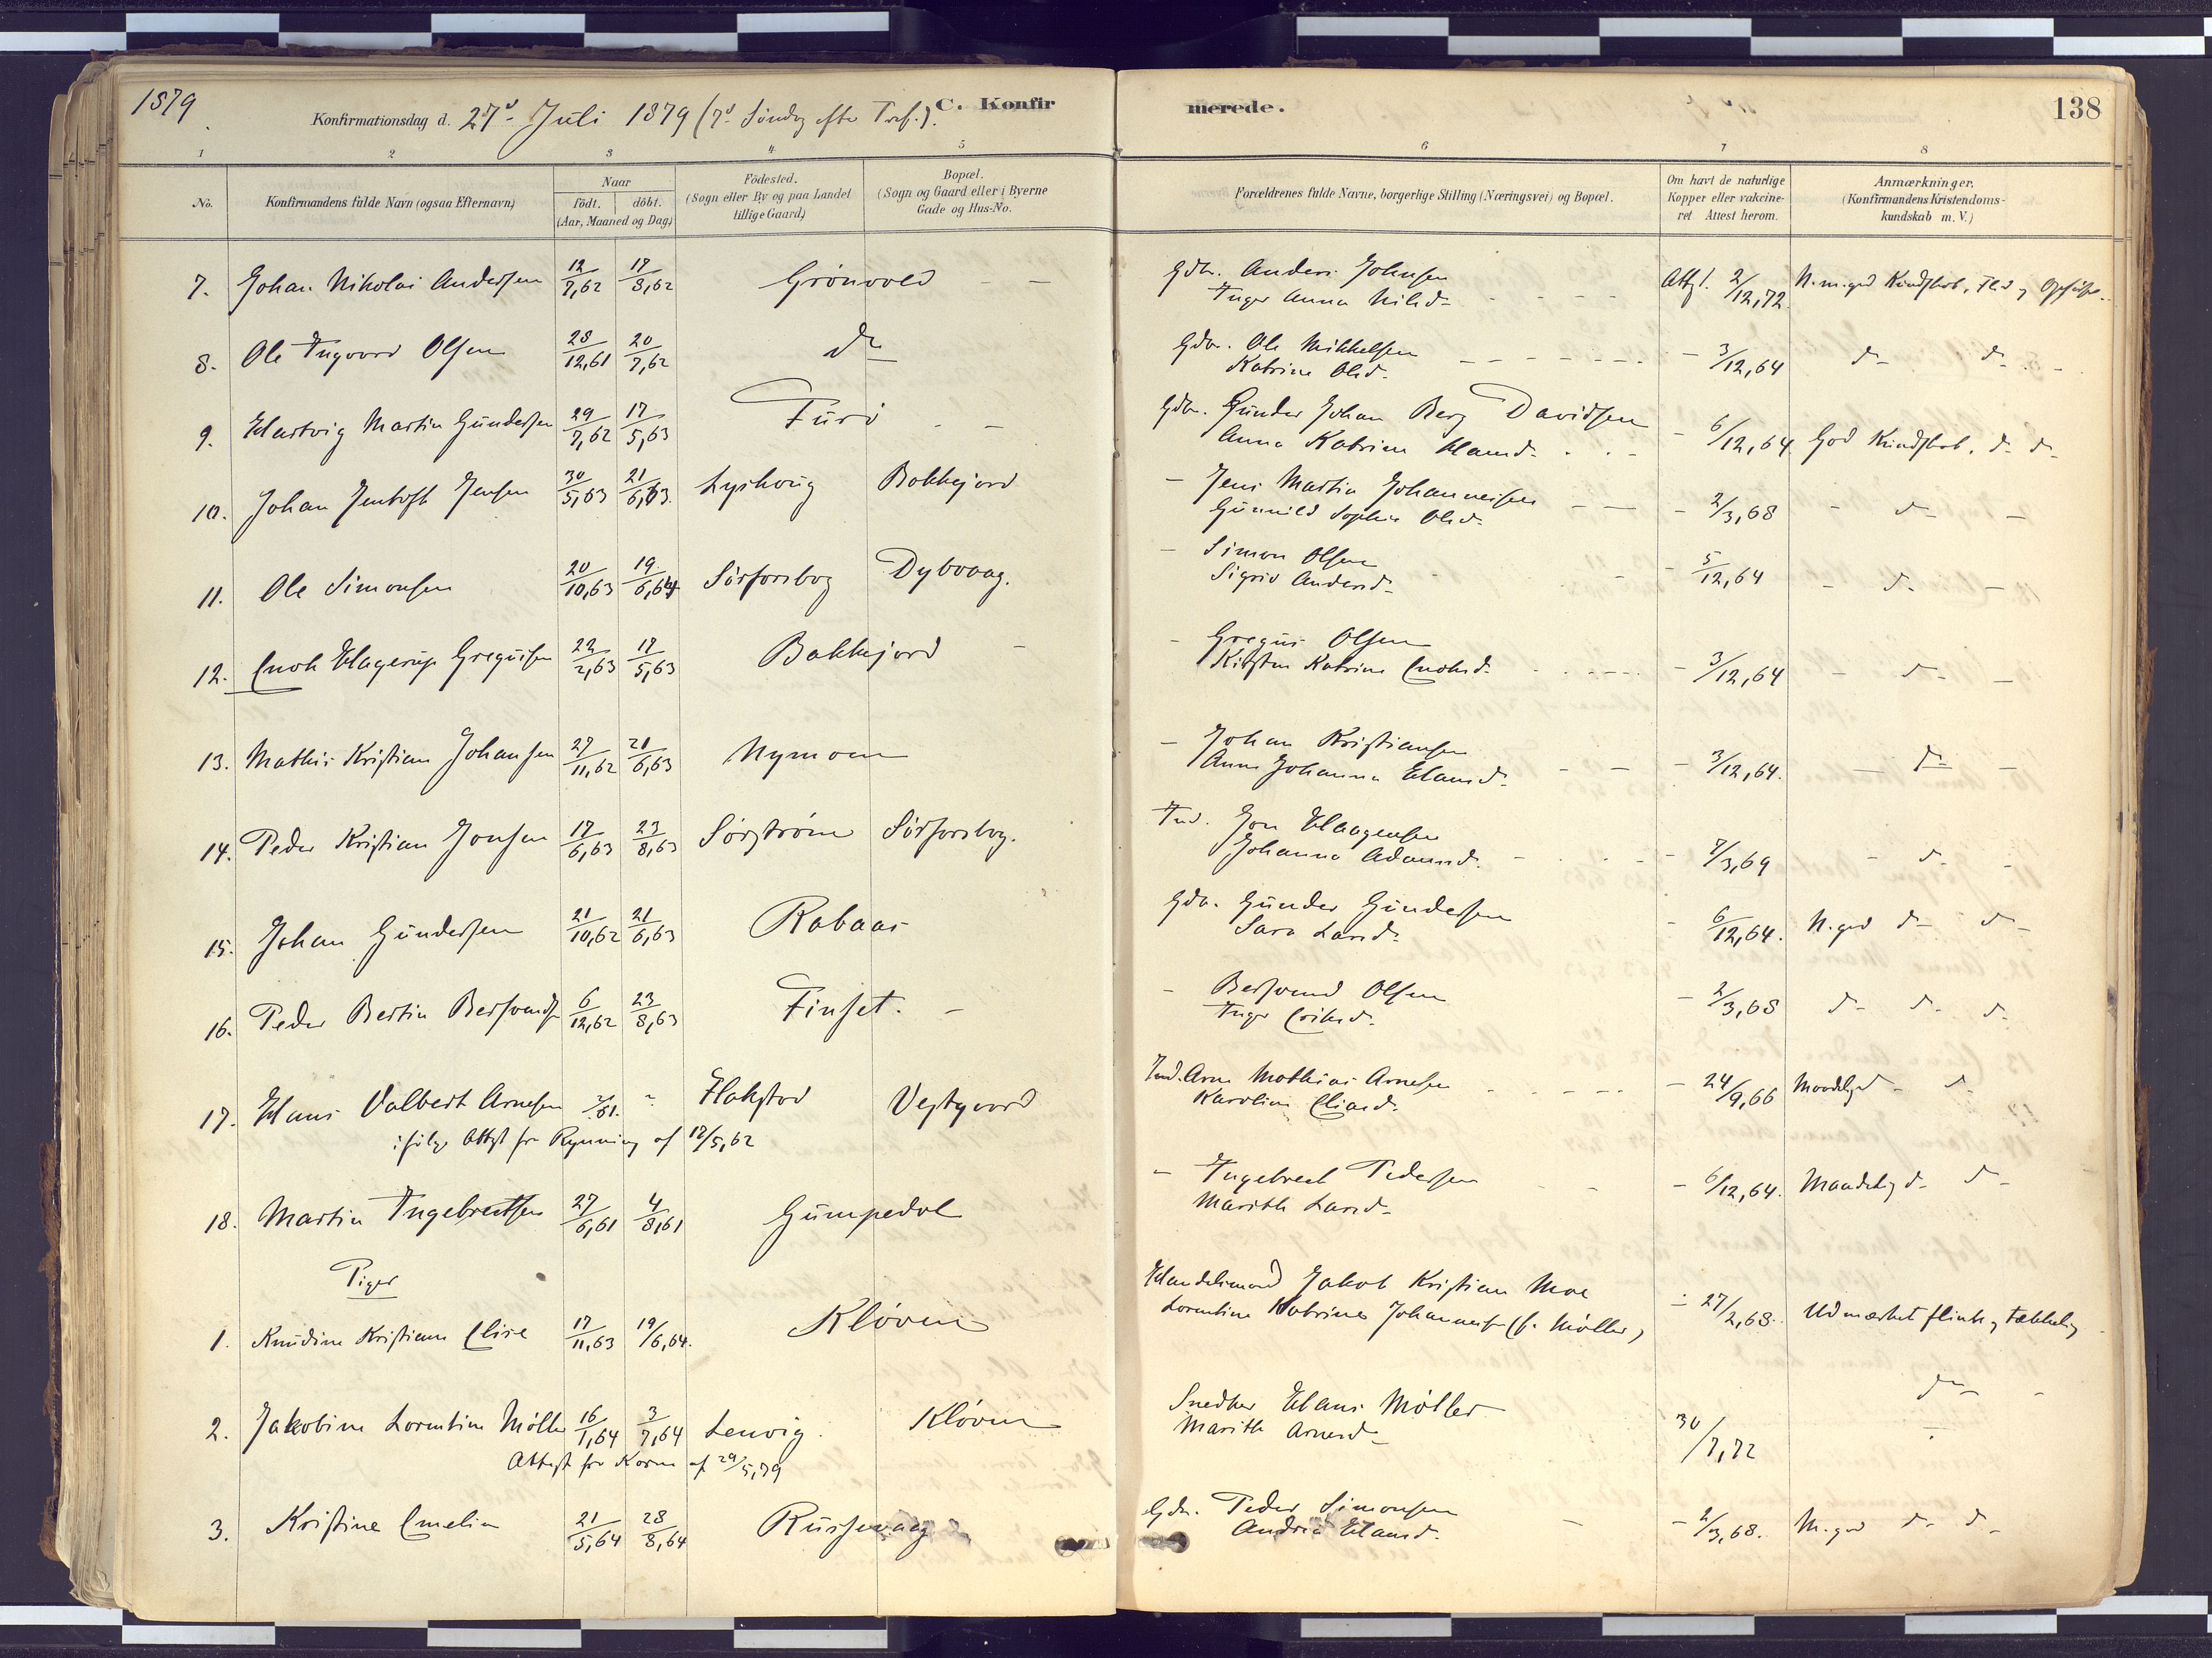 1879
Konfirmationsdag d. 27d Juli 1879 (7d Søndag efter Tref.). C. Konfirmerede. 138
1 2 3 4 5 6 7 8
No.
Konfirmandens fulde Navn (ogsaa Efternavn)
Naar
födt. döbt.
(Aar, Maaned og Dag)
Födested.
(Sogn eller By og paa Landet
tillige Gaard)
Bopæl.
(Sogn og Gaard eller i Byerne
Gade og Hus-No.
Forældrenes fulde Navne, borgerlige Stilling (Næringsvei) og Bopæl.
Om havt de naturlige
Kopper eller vakcine-
ret Attest herom.
Anmærkninger.
(Konfirmandens Kristendoms-
kundskab m. V.)
7. Johan Nikolai Andersen 12/7,62 17/8,62 Grönvold - - Gdbr. Anders Johnsen Attst. 2/12,72 N. m. god Kundskab, Flid og
Inger Anna Nilsd.
8. Ole Ingvard Olsen 28/12,61 20/7,62 do Gdbr. Ole Mikkelsen - 3/12,64 do do
Katrine Olsd.
9. Hartvig Martin Gundersen 29/7,62 17/5,63 Furö - - Gdbr. Gunder Johan Berg Davidsen - 6/12,64 God Kundskab. do do
Anna Katrine Hansd.
10. Johan Jentoft Jensen 30/5,63 21/6,63 Lyshoug Bakkejord - Jens Martin Johannesen - 2/3,68 - do -
Gunnild Sophie Olsd.
11. Ole Simonsen 20/10,63 19/6,64 Sörforsbog Dybvaag. - Simon Olsen - 5/12,64 - do -
Sigrid Andersd.
12. Enok Hagerup Gregusen 22/2,63 17/5,63 Bakkejord - - Gregus Olsen - 3/12,64 - do -
Kirsten Katrine Enoksd.
13. Mathis Kristian Johansen 27/11,62 21/6,63 Nymoen - Johan Kristiansen - 3/12,64. - do -
Anne Johanna Hansd.
14. Peder Kristian Jonsen 17/6,63 23/8,63 Sörströmen Sörforsbog. Ind. Jon Haagensen - 7/3,69 - do -
Johanna Adamsd.
15. Johan Gundersen 21/10,62 21/6,63 Rabaas Gdbr. Gunder Gundersen - 6/12,64. N. god do do
Sara Larsd.
16. Peder Bertin Bersvends. 6/12,62 23/8,63 Finset. - - Bersvend Olsen - 2/3,68 do do do
Inger Eriksd.
17. Hans Valbert Arnesen ?/61. ? Flakstad Vestgaard Ind. Arne Mathias Arnesen - 24/9,66 Maadelig do do
Karoline Eliasd.
ifölge Attest fra Rynning af 18/5,62
18. Martin Ingebretsen 27/6,61 4/8,61 Gumpedal - Ingebret Pedersen - 6/12,64. Maadelig do do
Marith Larsd.
Piger
1. Knudine Kristiane Elise 17/11,63 19/6,64. Klöven Handelsmand Jakob Kristian Moe - 27/2,68. Udmærket flink og tækkelig
Lorentine Katrine Johannesen (f. Möller)
2. Jakobine Lorentine Möller 16/1,64 3/7,64 Lenvig. Klöven Snedker Hans Möller 30/7,72 do -
Marith Arnesd.
Attest fra Korne af 29/5,79
3. Kristine Emelie 21/5,64 28/8,64 Russevaag Gdbr. Peder Simonsen - 2/3,68. M. god do do
Andrea Hansd.